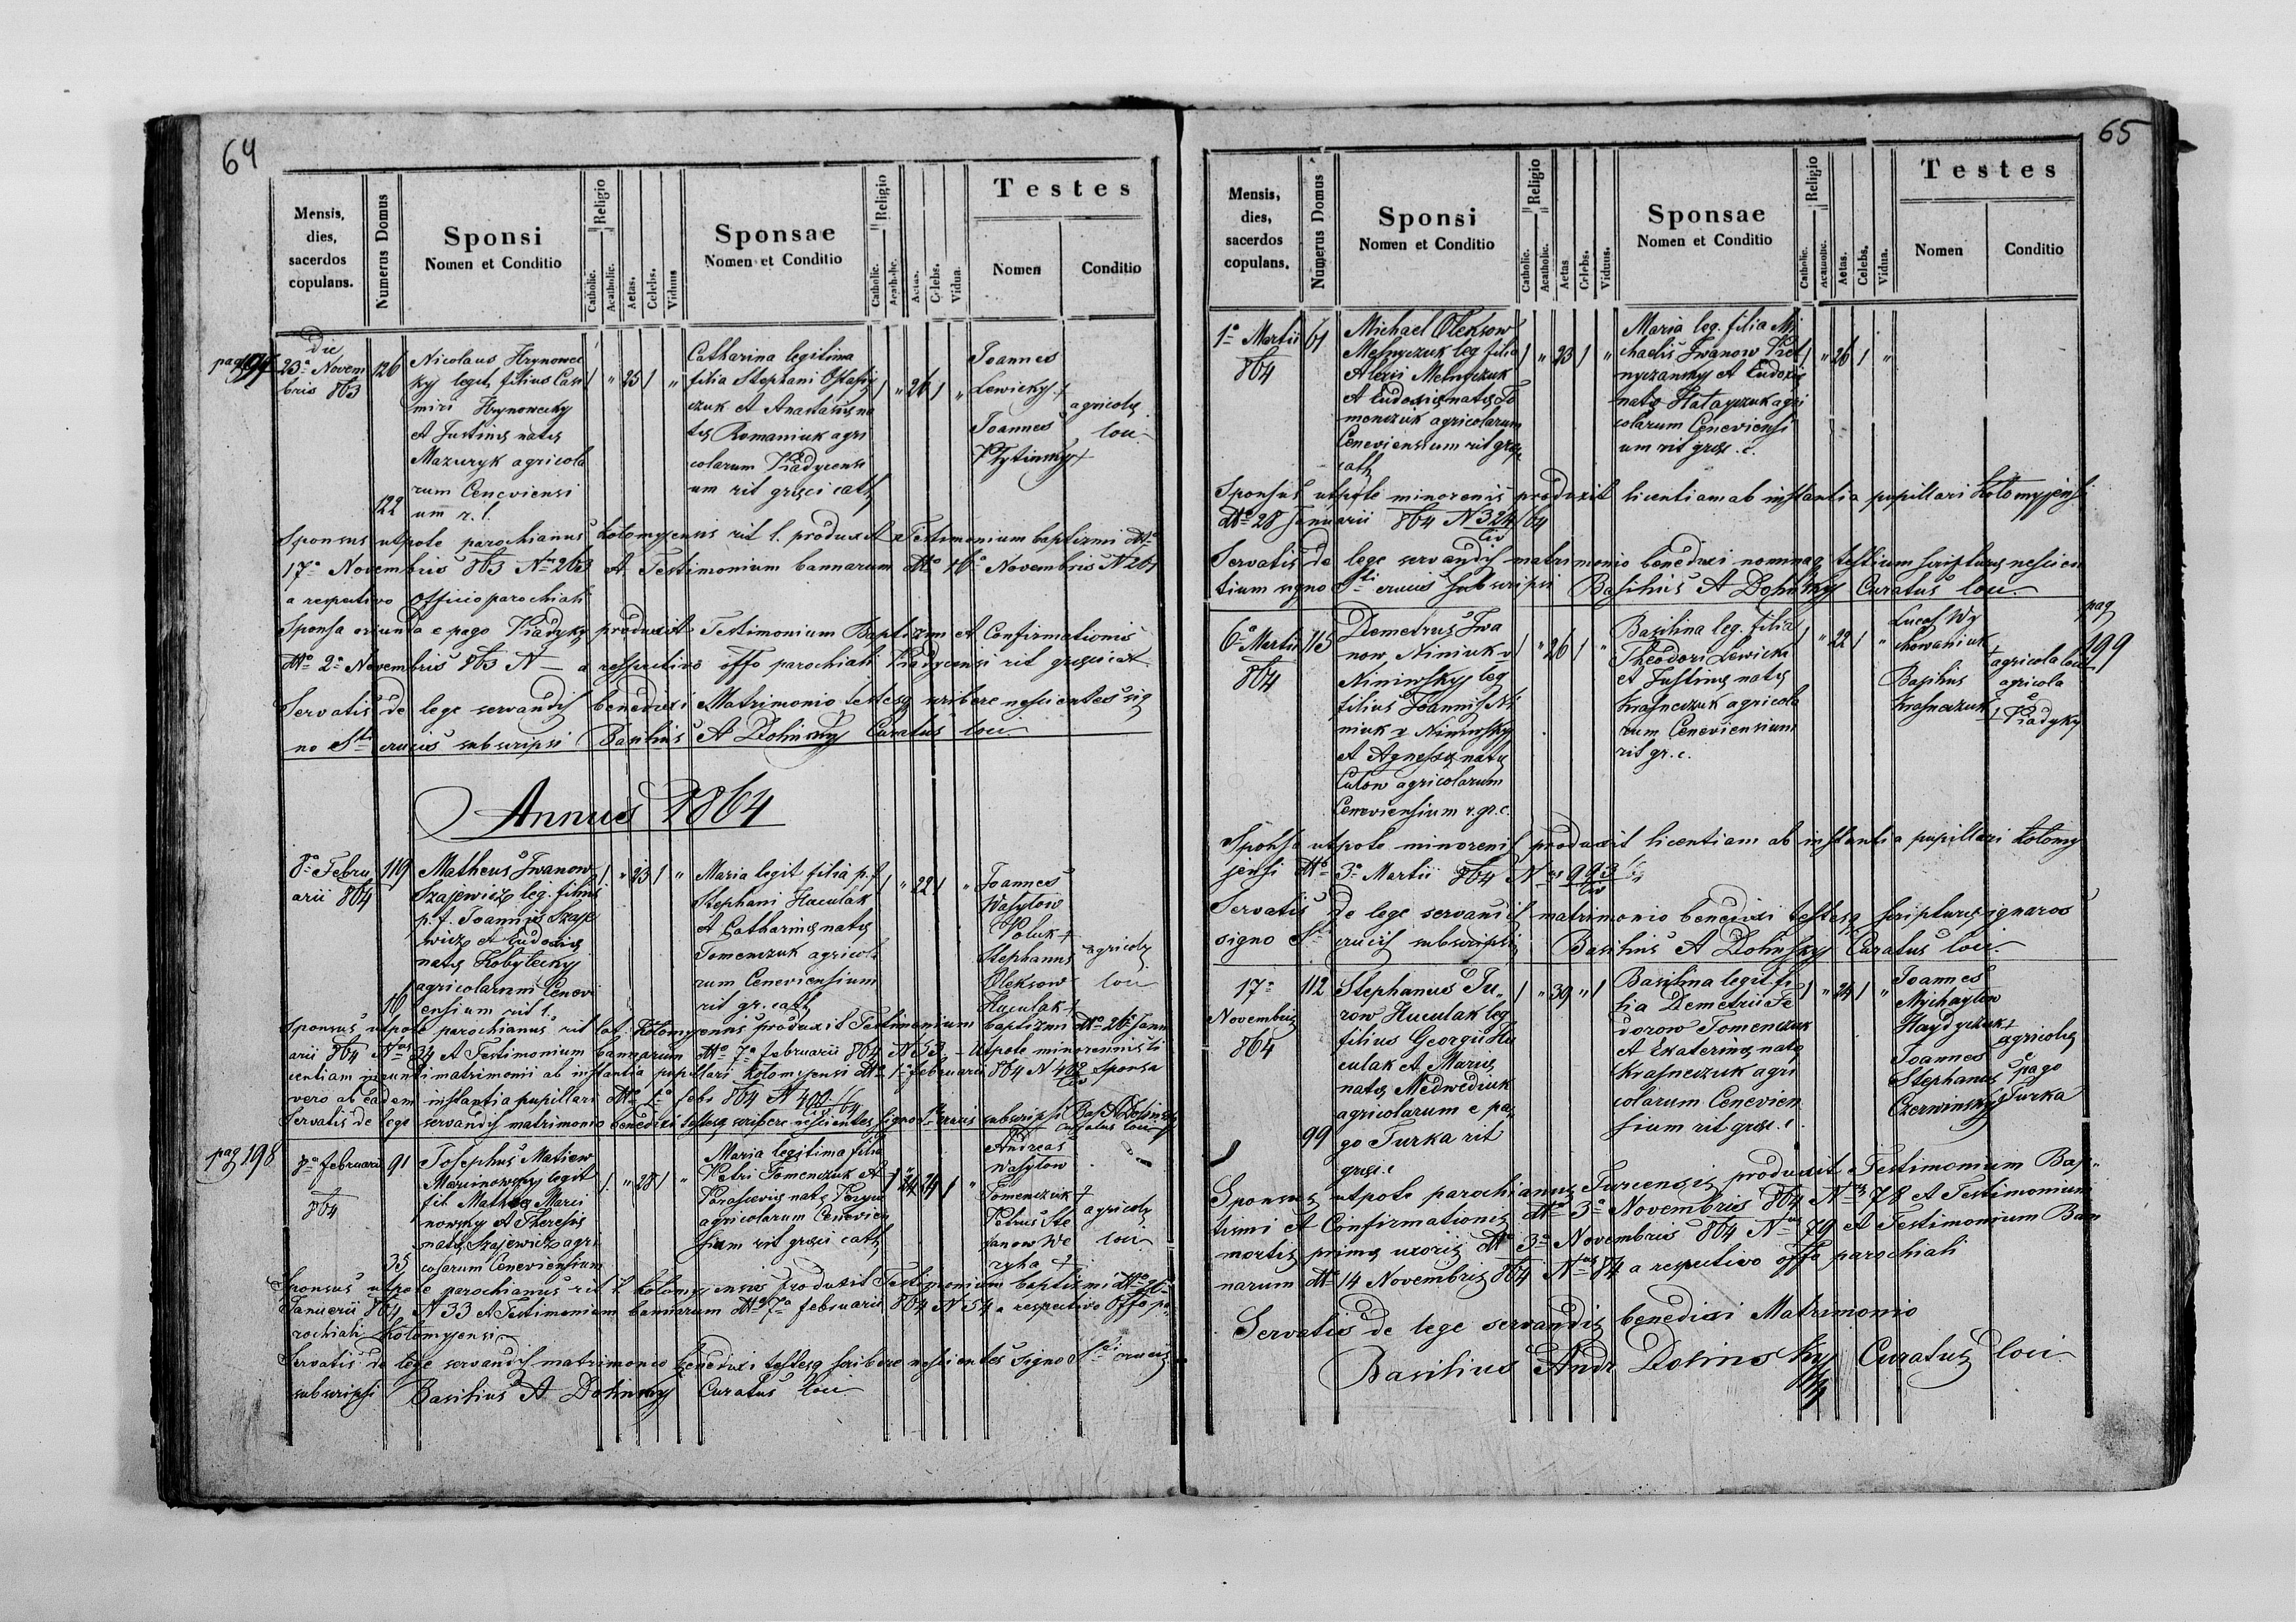 64
Mensis,
dies,
sacerdos
copulans.
Numerus Domus
Sponsi
Nomen et Conditio
Religio
Catholic.
Acatholic.
Aetas.
Celebs.
Viduus
Sponsae
Nomen et Conditio
Religio
Catholic.
Acatholic.
Aetas.
Celebs.
Vidua.
Testes
Nomen
Conditio
die
23a Novem
bris 863
126
122
Nicolaus Hrynowec
ky legit filius Casi
miri Hrynowecky
et Justinę natę
Mazuryk agricola
rum Ceneviensi
um r. l.
1 " 25 1 "
Catharina legitima
filia Stephani Ostafij
czuk et Anastasię na
tę Romaniuk agri
colarum Piadycensi
um rit gręci cath
1 " 26 1 "
Joannes
Lewicky +
Joannes
+
agricolę
loci
Sponsus utpote parochianus Kolomyensis rit l. produxit Testimonium baptizmi dtto
17a Novembris 863 Nr 263 et Testimonium bannorum dtto 16a Novembris N 264
a respectivo officio parochiali
Sponsa oriunda e pago Piadyky produxit Testimonium Baptizmi et Confirmationis
dtto 2a Novembris 863 N — a respectivo offo parochiali Piadycensi rit gręci cat
Servatis de lege servandis benedixi Matrimonio testesq scribere nescientes sig
no Stae crucis subscripsi Basilius A Dolinsky Curatus loci
Annus 1864
8a Febru
arii 864
119
Matheus Iwanow
Szajewicz leg. filius
p. f. Joannis Szaje
wicz et Eudoxię
natę Kobylecky
agricolarum Cenevi
ensium rit l.
1 " 23 1 "
Maria legit filia p. f.
Stephani Huculak
et Catharinę natę
Tomenczuk agricola
rum Ceneviensium
rit gr. cath
1 " 22 1 "
Joannes
Wasylow
Soluk +
Stephanus
Oleksow
Huculak +
agricolę
loci
Sponsus utpote parochianus rit lat. Kolomyensis produxit Testimonium baptizmi dtto 26a Janu
arii 864 Nrus 34 et Testimonium bannorum dtto 7a februarii 864 N 53 – utpote minorennis li
centiam ineundi matrimonii ab instantia pupillari Kolomyjensi dtto 1a februarii 864 N 402 Sponsa
vero ab eadem instantia pupillari dtto 4a febr 864 N 400/64
Servatis de lege servandis matrimonio benedixi testesq scribere nescientes signo Stae crucis subscripsi Bas A Dolinsky
curatus loci
pag 198
8a februarii
864
91
35
Josephus Matiew
Marcinowsky legit
fil Mathei Marci
nowsky et Theresię
natę Szajewicz agri
colarum Ceneviensium
1. " 28 1 "
Maria legitima filia
Petri Tomenczuk et
Parascevię natę
agricolarum Cenevien
sium rit gręci cath
24 1 "
Andreas
Wasylow
Tomenczuk +
Petrus Ste
fanow We
ryha +
agricolę
loci
Sponsus utpote parochianus rit l. Kolomyjensis produxit Testimonium baptizmi dtto 26a
Januarii 864 N 33 et Testimonium bannorum dtto 7a februarii 864 N 54 a respectivo offo pa
rochiali Kolomyjensi
Servatis de lege servandis matrimonio benedixi testesq scribere nescientes signo Stae crucis
subscripsi Basilius A Dolinsky Curatus loci
65
Mensis,
dies,
sacerdos
copulans.
Numerus Domus
Sponsi
Nomen et Conditio
Religio
Catholic.
Acatholic.
Aetas
Celebs.
Viduus.
Sponsae
Nomen et Conditio
Religio
Catholic.
Acatholic.
Aetas.
Celebs.
Vidua.
Testes
Nomen
Conditio
1a Martii
864
61
Michael Oleksow
Melnyczuk leg filiu
Alexii Melnyczuk
et Eudoxię natę To
menczuk agricolarum
Ceneviensium rit gręc
cath
1 " 23 1 "
Maria leg. filia Mi
chaelis Iwanow
et Eudoxię
natę Hatayczuk agri
colarum Ceneviensi
um rit gręc. c.
1 " 26 1 "
Sponsus utpote minorenis produxit licentiam ab instantia pupillari Kolomyjensi
dtto 28 Januarii 864 N 324/64
civ
Servatis de lege servandis matrimonio benedixi nominaq testium scripturę nescien
tium signo Sti crucis subscripsi Basilius A Dolinsky Curatus loci
pag
199
6a Martii
864
115
Demetrius Iwa
now Niniuk v
Niniwsky leg
filius Joannis Ni
niuk v Niniwsky
et Agnessę natę
Culow agricolarum
Ceneviensium r. gr. c.
1 " 26 1 "
Basilina leg. filia
Theodori Lewicki
et Justinę natę
Krasneczuk agricola
rum Ceneviensium
rit gr. c.
1 " 22 1 "
Lucas Wy
chowaniuk
Basilius
Krasneczuk
+ agricola loci
agricola
e
+ Piadyky
Sponsa utpote minorenis produxit licentiam ab instantia pupillari Kolomy
jensi dtto 3a Martii 864 Nrus 993
civ
Servatis de lege servandis matrimonio benedixi testesq scripturę ignaros
signo Sti crucis subscripsi Basilius A Dolinsky Curatus loci
17a
Novembris
864
112
99
Stephanus Ju„
row Huculak leg
filius Georgii Hu
culak et Marię
natę Medwediuk
agricolarum e pa„
go Turka rit
gręc. c
1 " 39 " 1
Basilina legit. fi
lia Demetrii Te
dorow Tomenczuk
et Ekaterinę natę
Krasneczuk agri
colarum Cenevien
sium rit gręc. c.
1 " 24 1 "
Joannes
Mychaylow
Haydyczuk +
Joannes
Stephanus
Czerwinsky
agricolę
e pago
Turka
Sponsus utpote parochianus Turcensis produxit Testimonium Bap„
tismi et Confirmationis dtto 3a Novembris 864 Nrus 78 et Testimonium
mortis primę uxoris dtto 3a Novembris 864 Nrus 79 et Testimonium Ban
norum dtto 14 Novembris 864 Nrus 84 a respectivo offo parochiali
Servatis de lege servandis benedixi Matrimonio
Basilius Andr Dolinsky Curatus loci